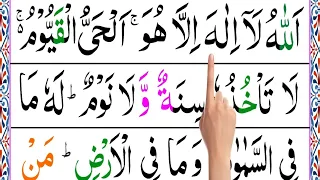 اَللّٰهُ لَاۤ اِلٰهَ اِلَّا هُوَ ۚ اَلْحَیُّ الْقَیُّوْمُ ۚ۬
لَا تَاْخُذُهٗ سِنَةٌ وَّلَا نَوْمٌ ؕ لَهٗ مَا
فِی السَّمٰوٰتِ وَمَا فِی الْاَرْضِ ؕ مَنْ